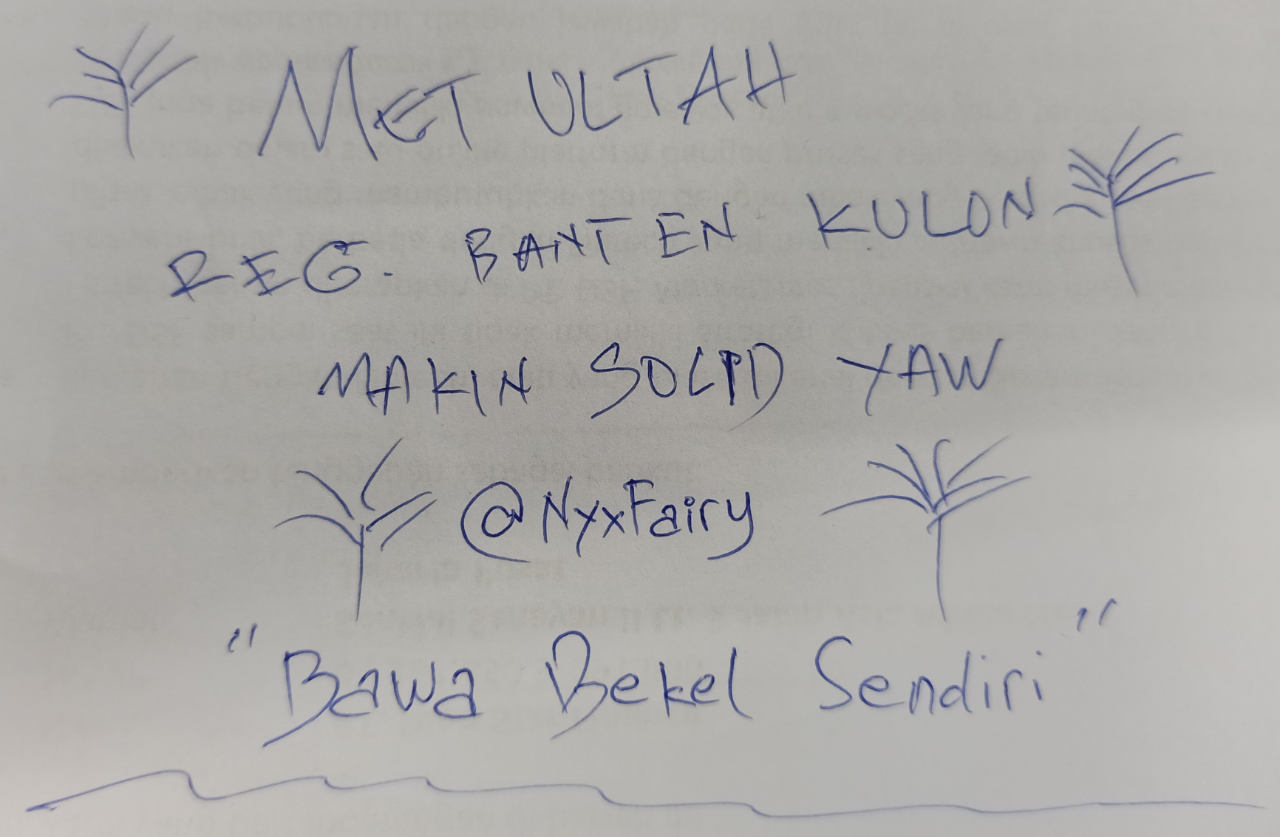 MET ULTAH
REG. BANTEN KULON
MAKIN SOLID YAW
@NyxFairy
"Bawa Bekel Sendiri"